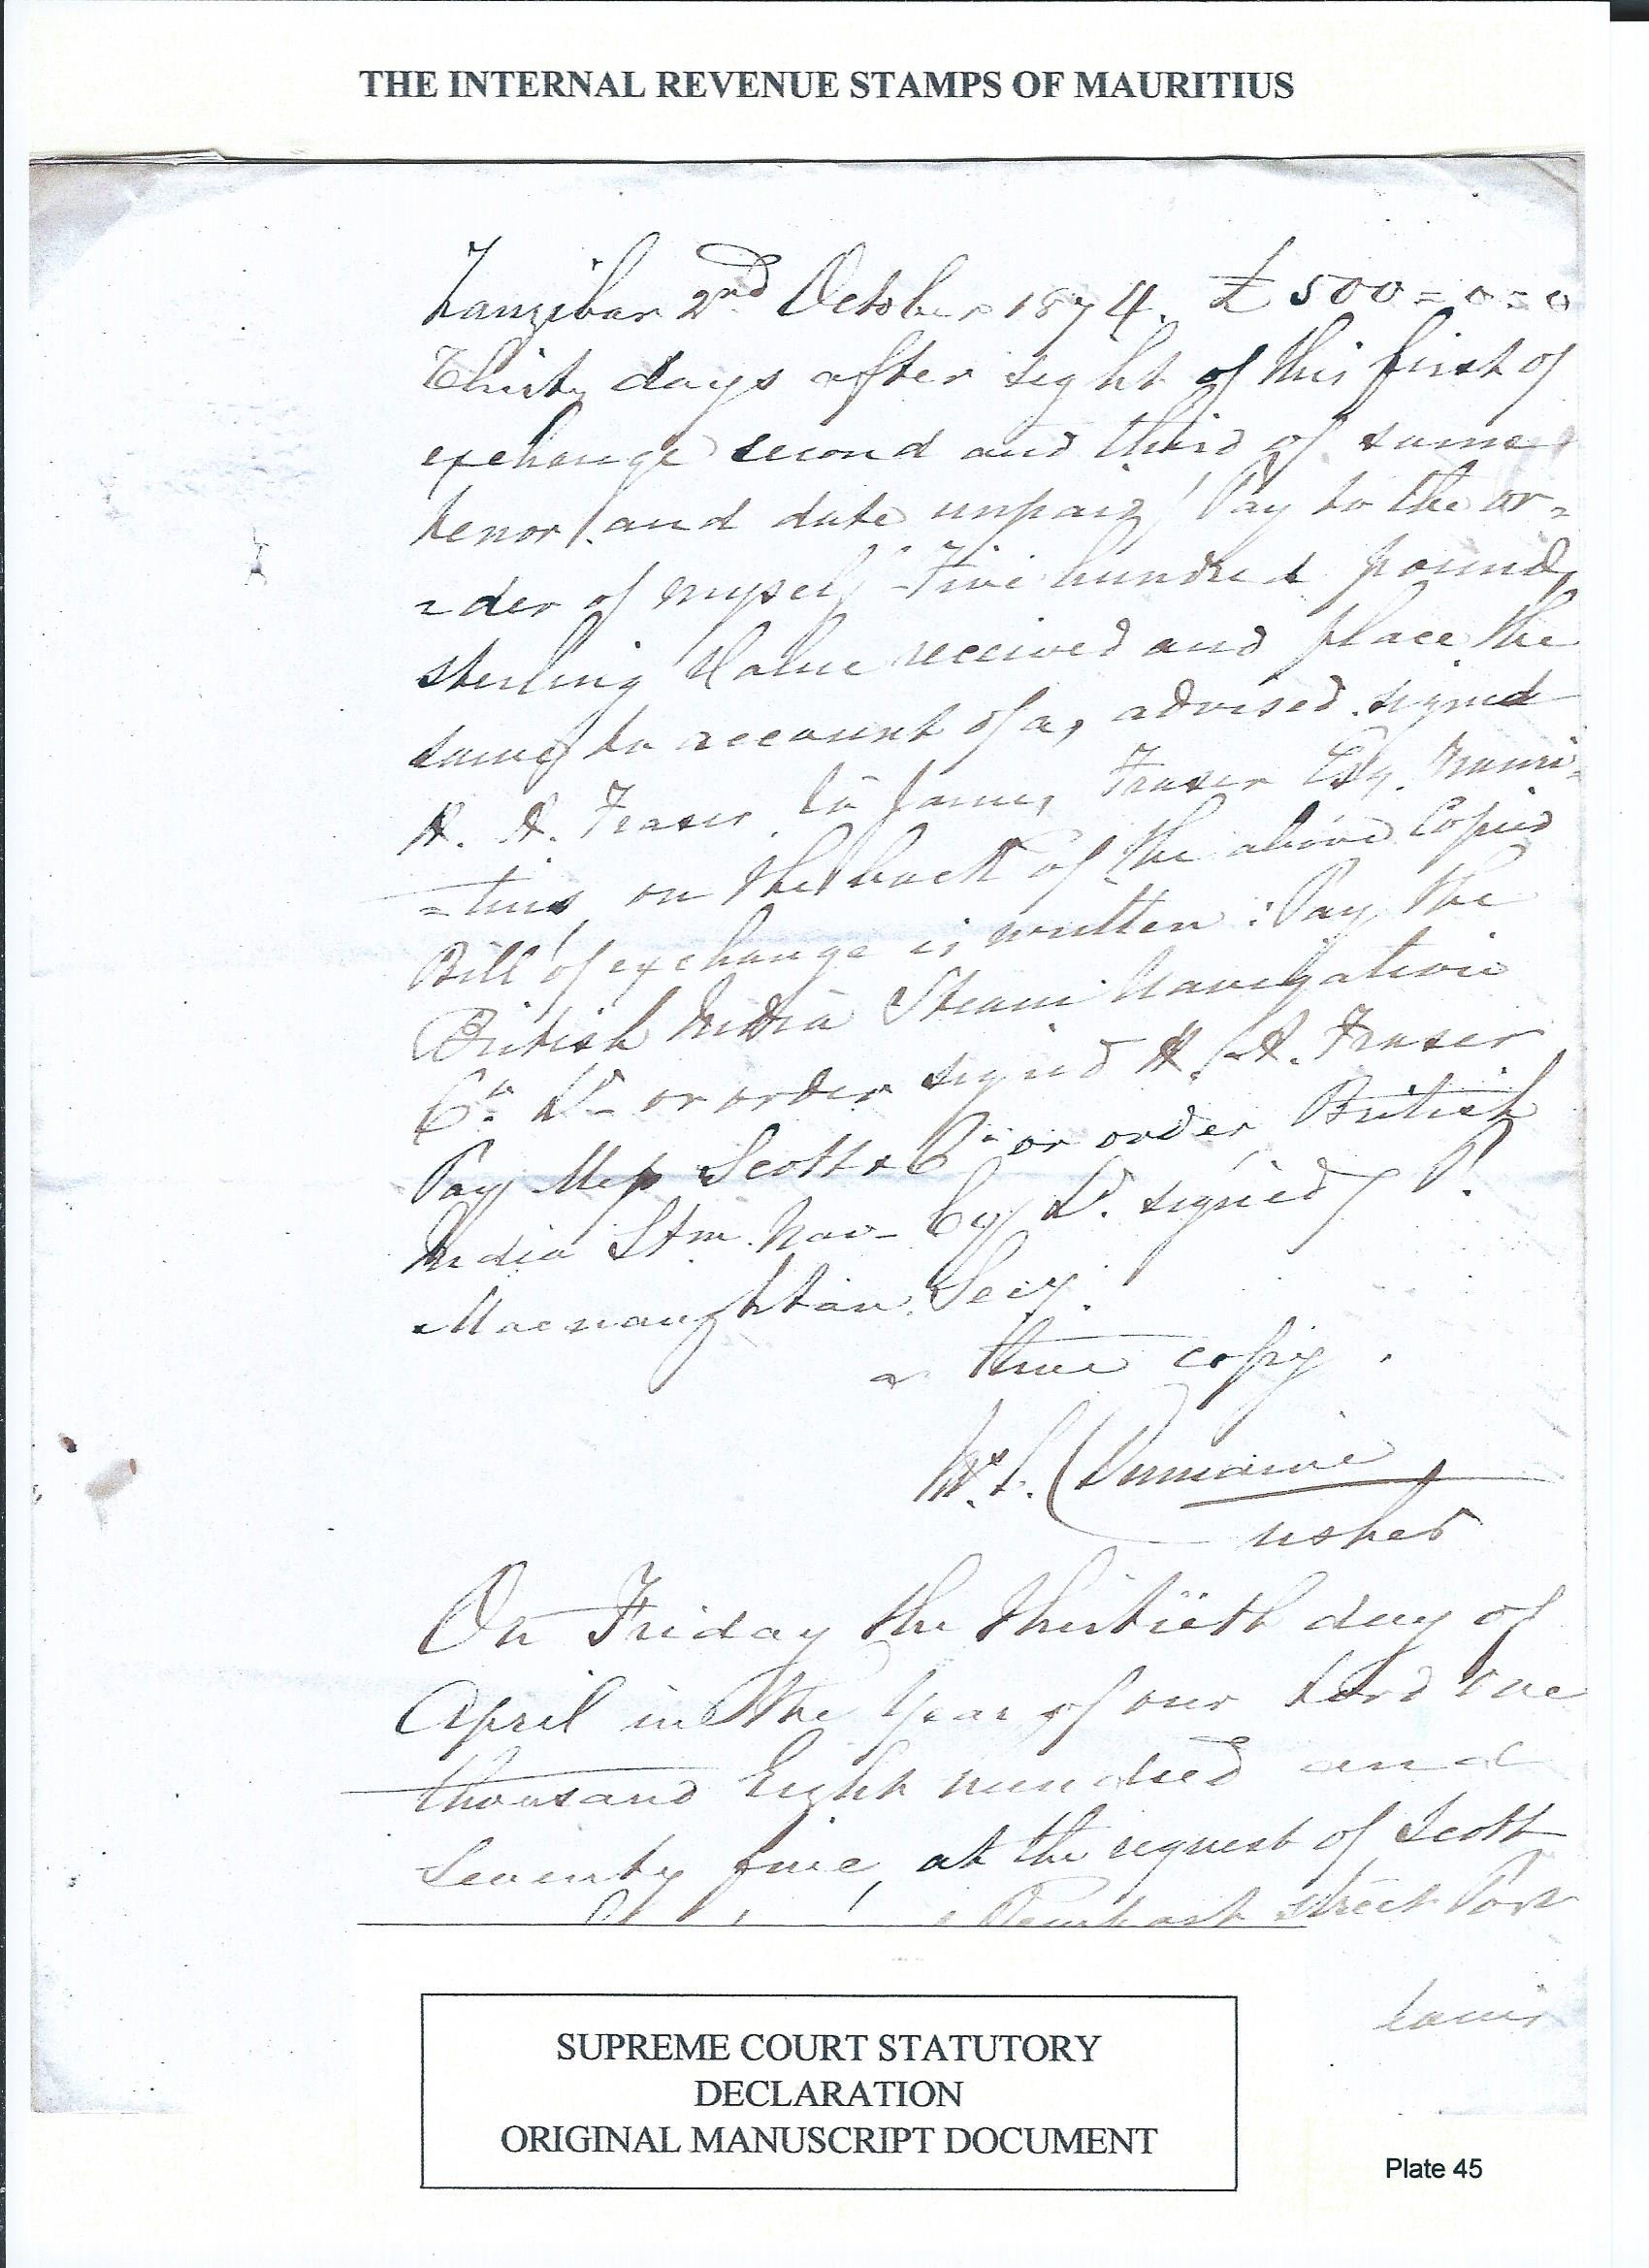 THE INTERNAL REVENUE STAMPS OF MAURITIUS
Zanzibar 2nd October 1874. £ 500 = 0 = 0
Thirty days after sight of this first of
exchange second and third of same
tenor and date unpaid Pay to the or=
=der of myself Five hundred pounds
sterling Value received and place the
same to account of as advised signed
H. A. Fraser to James Fraser Esq. Mauri=
=tius on the back of the above Copied
Bill of exchange is written : Pay the
British India Steam Navigation
Co. Ld or order signed H. A. Fraser
Pay Mess Scott & Co or order British
India Stm. Nav- Coy Ld. signed P.
Macnaughtan Secy.
a true copy.
Dumaine
usher
On Friday the thirtieth day of
April in the Year of our Lord one
thousand Eight hundred and
Seventy five, at the request of Scott
street Port
Louis
SUPREME COURT STATUTORY
DECLARATION
ORIGINAL MANUSCRIPT DOCUMENT
Plate 45